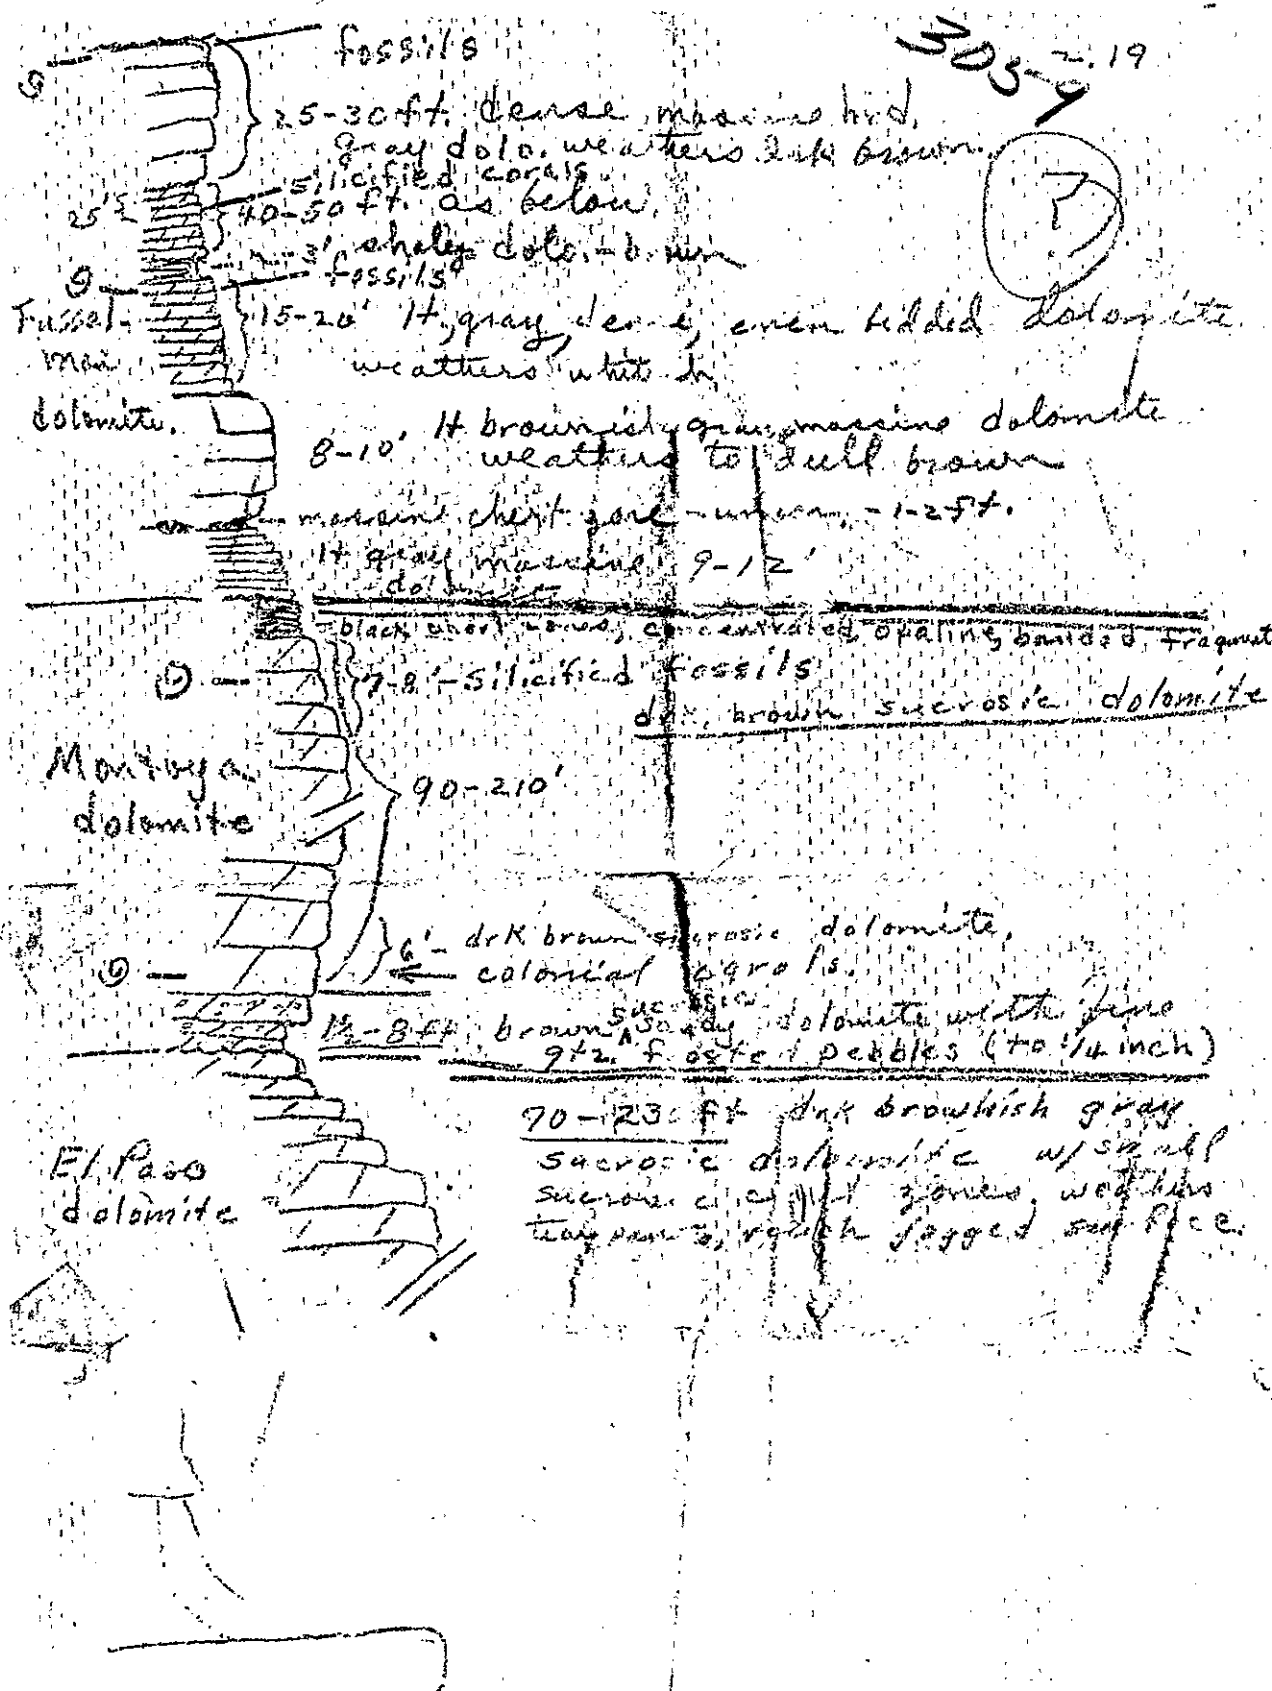 305-9
2.19
fossils
25-30 ft. dense, massive bd.
gray dolo. weathers drk brown.
silicified corals.
25'
40-50 ft. as below.
3' shaley dolo. - brown
fossils
Fussel-
man
dolomite.
15-20' lt. gray, dense, even bedded dolomite
weathers whitish
8-10' lt brownish gray massive dolomite
weathers to dull brown
massive chert zone - uneven - 1-2 ft.
lt gray massive 9-12'
dolomite
black chert zones, concentrated, opaline, banded, fragment
7-8' - silicified fossils
drk. brown sucrosic dolomite
Montoya
dolomite
90-210'
6' - drk brown sucrosic dolomite,
colonial corals.
sucrosic
1½-8 ft, brown sandy dolomite with fine
qtz. frosted pebbles (to 1/4 inch)
El Paso
dolomite
drk brownish gray
sucrosic dolomite w/ small
sucrosic chert zones. weathers
rough jagged surface.